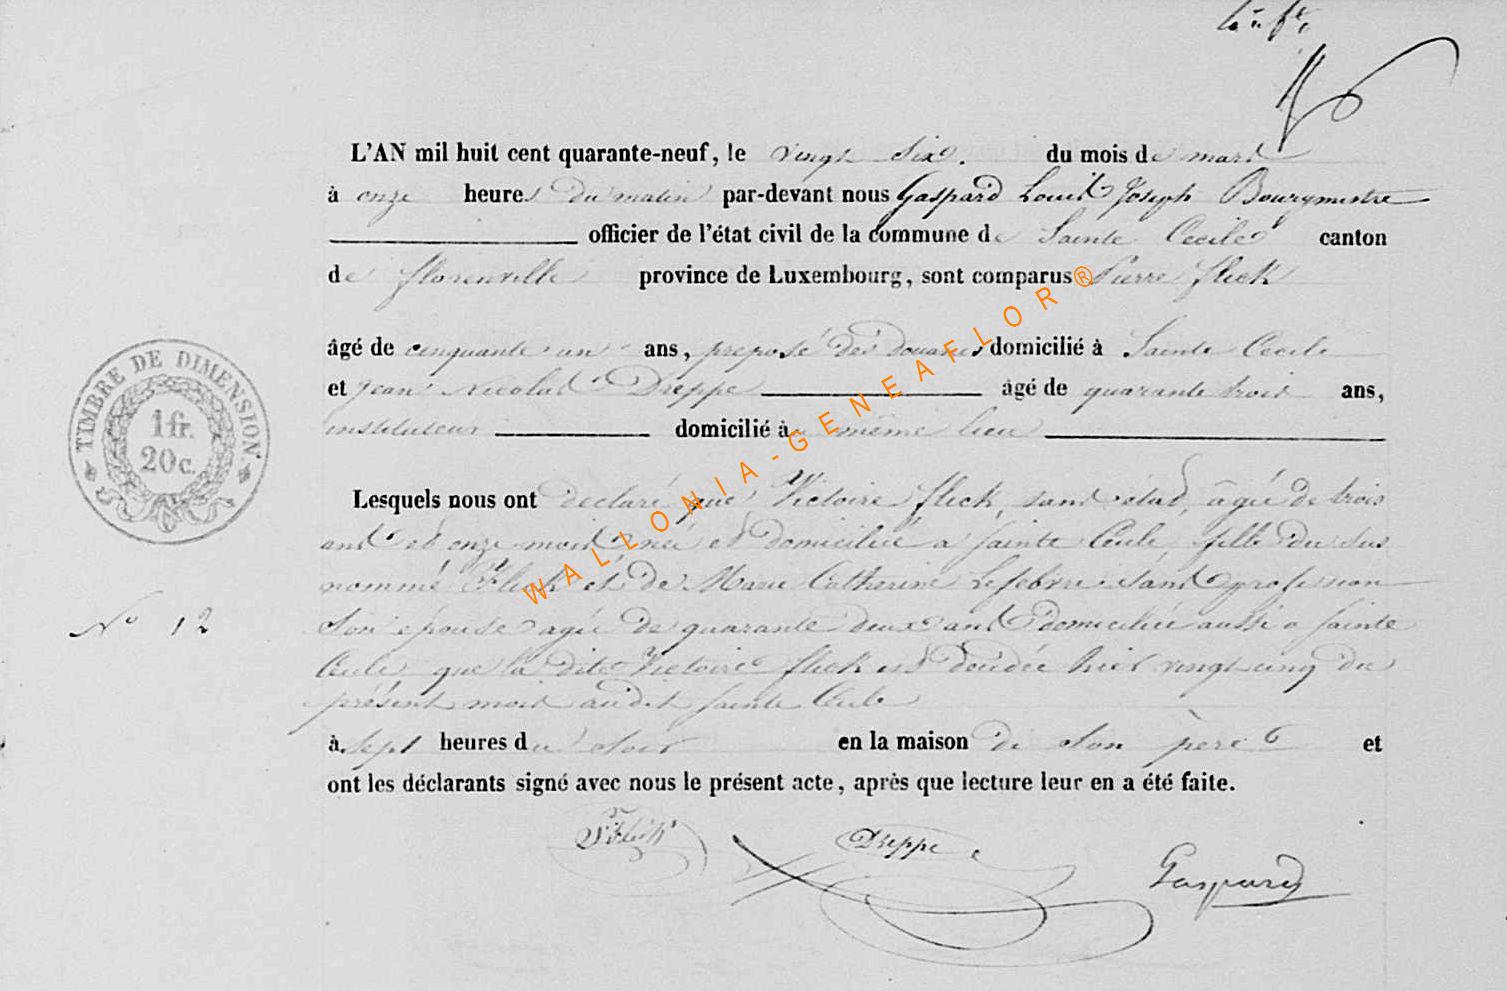 L'AN mil huit cent quarante-neuf, le vingt six. du mois de mars
à onze heures du matin par-devant nous Gaspard Louis Joseph Bourgmestre
officier de l'état civil de la commune de Sainte Cecile canton
de florenville province de Luxembourg, sont comparus Pierre fleck
âgé de cinquante un ans, preposé des douanes domicilié à Sainte Cecile
et Jean Nicolas Dreppe âgé de quarante trois ans,
instituteur domicilié au même lieu
TIMBRE DE DIMENSION.
1 fr.
20 c.
Lesquels nous ont declaré que Victoire fleck, sans état, âgée de trois
ans et onze mois, née et domiciliée a sainte Cecile, fille du sus
nommé Fleck et de Marie Catherine Lefebvre sans profession
N° 12
son épouse agée de quarante deux ans domiciliée aussi a sainte
Cecile que la dite Victoire fleck est décédée hier vingt cinq du
présent mois audit sainte Cecile
à sept heures du soir en la maison de son père et
ont les déclarants signé avec nous le présent acte, après que lecture leur en a été faite.
Fleck Dreppe Gaspard
WALLONIA-GENEAFLOR®